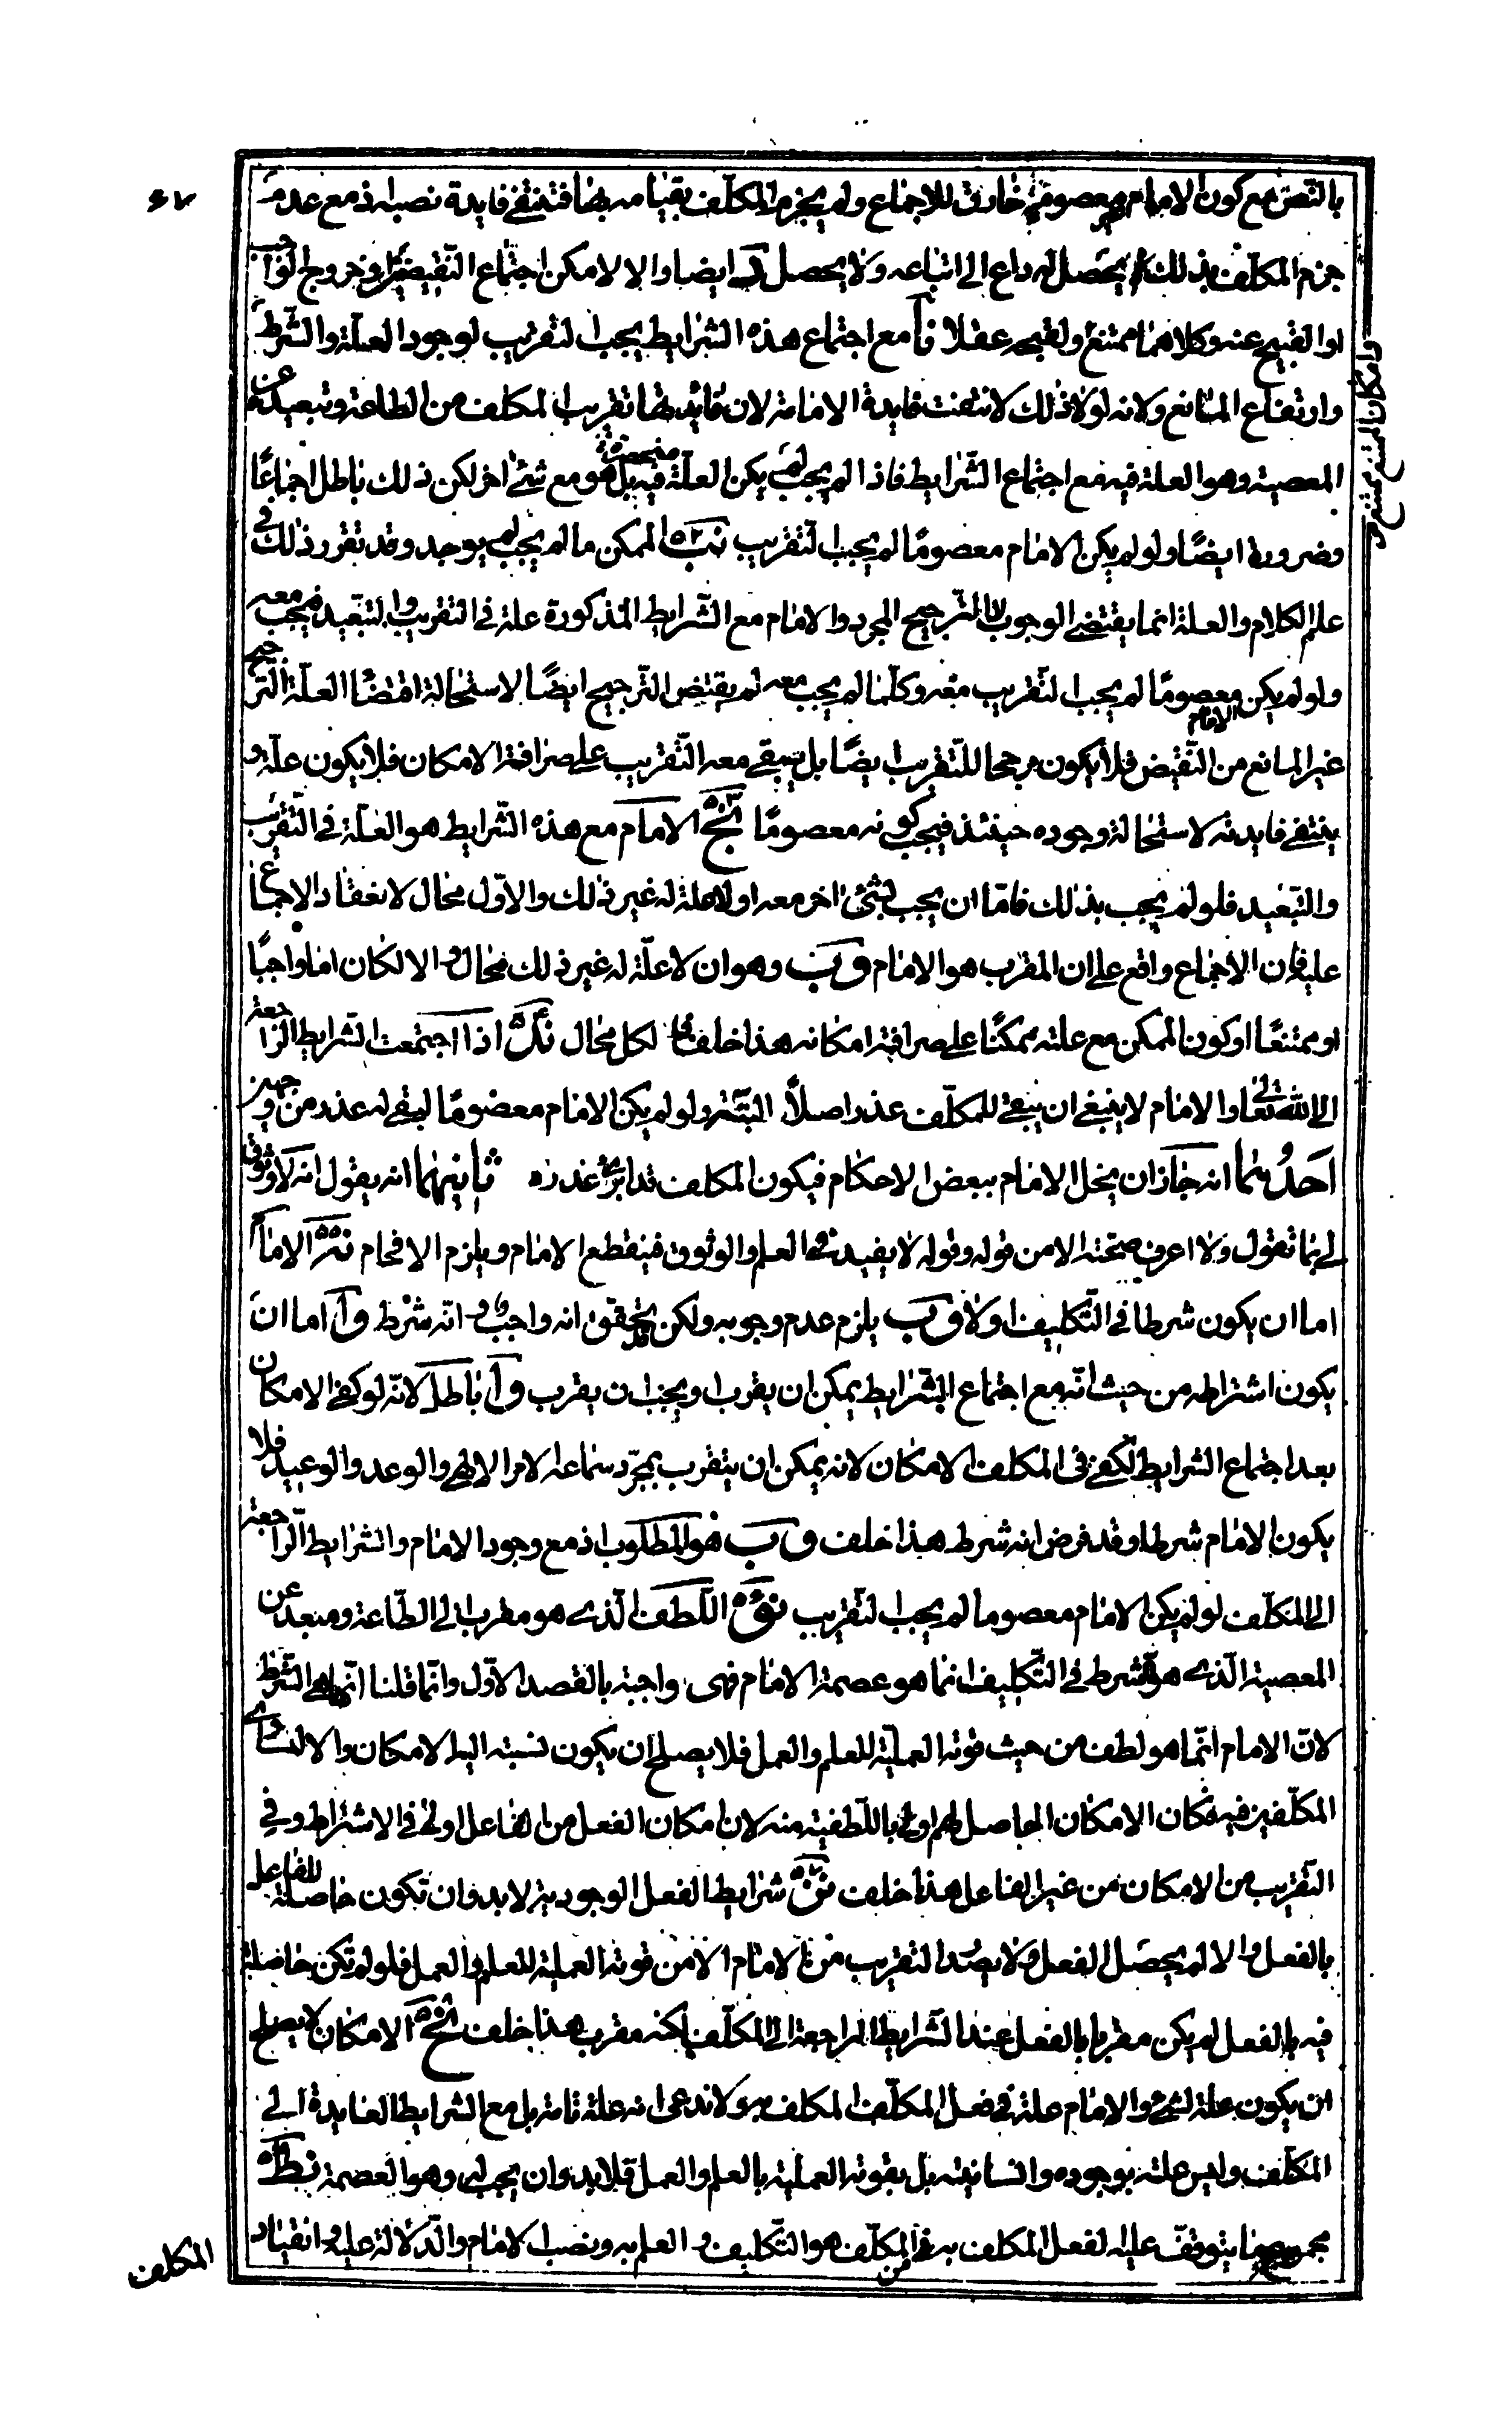 ٤٧
بالنص مع كون الامام معصوم خارق للاجماع ولم يجزم المكلف بقيامه بها فتنتفي فايدة نصبه اذ مع عدم
جزم المكلف بذلك لا يحصل له داع الى اتباعه ولا يحصل ايضا والا لامكن اجتماع النقيضين او خروج الواجب
او القبيح عنه وكلاهما ممتنع ولقبحه عقلا نا مع اجتماع هذه الشرايط يجب التقريب لوجود العلة والشرط
وارتفاع المانع ولانه لولا ذلك لانتفت فايدة الامامة لان فائدتها تقريب المكلف من الطاعة وتبعيده عن
المعصية وهو العلة فيه مع اجتماع الشرايط فاذا لم يجب لم يكن العلة منحصرة فيه بل هو مع شئ اخر لكن ذلك باطل اجماعا
وضرورة ايضا ولو لم يكن الامام معصوما لم يجب التقريب نب الممكن ما لم يجب لم يوجد وقد تقرر ذلك في
علم الكلام والعلة انما يقتضي الوجوب لا الترجيح المجرد والامام مع الشرايط المذكورة علة في التقريب والتبعيد فيجب معه
ولو لم يكن الامام معصوما لم يجب التقريب معه وكلما لم يجب معه لم يقتض الترجيح ايضا لاستحالة اقتضاء العلة الترجيح
غير المانع من النقيض فلا يكون مرجحا للتقريب ايضا بل يبقى معه التقريب على صرافة الامكان فلا يكون علة و
ينتفي فايدته لاستحالة وجوده حينئذ فيجب كونه معصوما نج الامام مع هذه الشرايط هو العلة في التقريب
والتبعيد فلو لم يجب بذلك فاما ان يجب بشئ اخر معه او لا علة له غير ذلك والاول محال لانعقاد الاجماع
عليه فان الاجماع واقع على ان المقرب هو الامام وب وهو ان لا علة له غير ذلك محال والا لكان اما واجبا
او ممتنعا او كون الممكن مع علته ممكنا على صرافة امكانه هذا خلف لكل محال ند اذا اجتمعت الشرايط الراجعة
الى الله تعالى والامام لا ينبغي ان يبقى للمكلف عذر اصلا البتة ولو لم يكن الامام معصوما لبقى له عذر من وجهين
احدهما انه جاز ان يخل الامام ببعض الاحكام فيكون المكلف قد عذره ثانيهما انه يقول انه لا وثوق
لي بما تقول ولا اعرف صحته الا من قوله وقوله لا يفيد العلم والوثوق فينقطع الامام ويلزم الافحام نه الامام
اما ان يكون شرطا في التكليف او لا وب يلزم عدم وجوبه ولكن تحقق انه واجب وانه شرط وا اما ان
يكون اشتراطه من حيث انه مع اجتماع الشرايط يمكن ان يقرب او يجب ان يقرب وا باطل لانه لو كفى الامكان
بعد اجتماع الشرايط لكفى في المكلف الامكان لانه يمكن ان يتقرب بمجرد سماعه الامر الالهي والوعد والوعيد فلا
يكون الامام شرطا وقد فرض انه شرط هذا خلف وب هو المطلوب اذ مع وجود الامام والشرايط الراجعة
الى المكلف لو لم يكن الامام معصوما لم يجب التقريب نو اللطف الذي هو مقرب الى الطاعة ومبعد عن
المعصية الذي هو شرط في التكليف انما هو عصمة الامام فهي واجبة بالقصد الاول وانما قلنا انها هي الشرط
لان الامام انما هو لطف من حيث قوته العملية للعلم والعمل فلا يصلح ان يكون نسبته اليه الامكان والا لتساوي
المكلفين فيه فكان الامكان الحاصل لهم اولى باللطفية منه لان امكان الفعل من الفاعل اولى في الاشتراط وفي
التقريب من الامكان من غير الفاعل هذا خلف نز شرايط الفعل الوجودية لا بد وان تكون حاصلة للفاعل
بالفعل والا لم يحصل الفعل ولا يصدر التقريب من الامام الا من قوته العملية للعلم والعمل فلو لم تكن حاصلة
فيه بالفعل لم يكن مقربا بالفعل عند الشرايط الراجعة الى المكلف لكنه مقرب هذا خلف نح الامكان لا يصلح
ان يكون علة لشئ والامام علة في فعل المكلف المكلف به ولا ندعي انه علة تامة بل مع الشرايط العايدة الى
المكلف وليس علته بوجوده وانسانيته بل بقوته العملية بالعلم والعمل فلا بد وان يجب له وهو العصمة نط
مجموع ما يتوقف عليه لفعل المكلف به من المكلف هو التكليف والعلم به ونصب الامام والدلالة عليه وانقياد
المكلف
وامكان الممتنع ممتنع